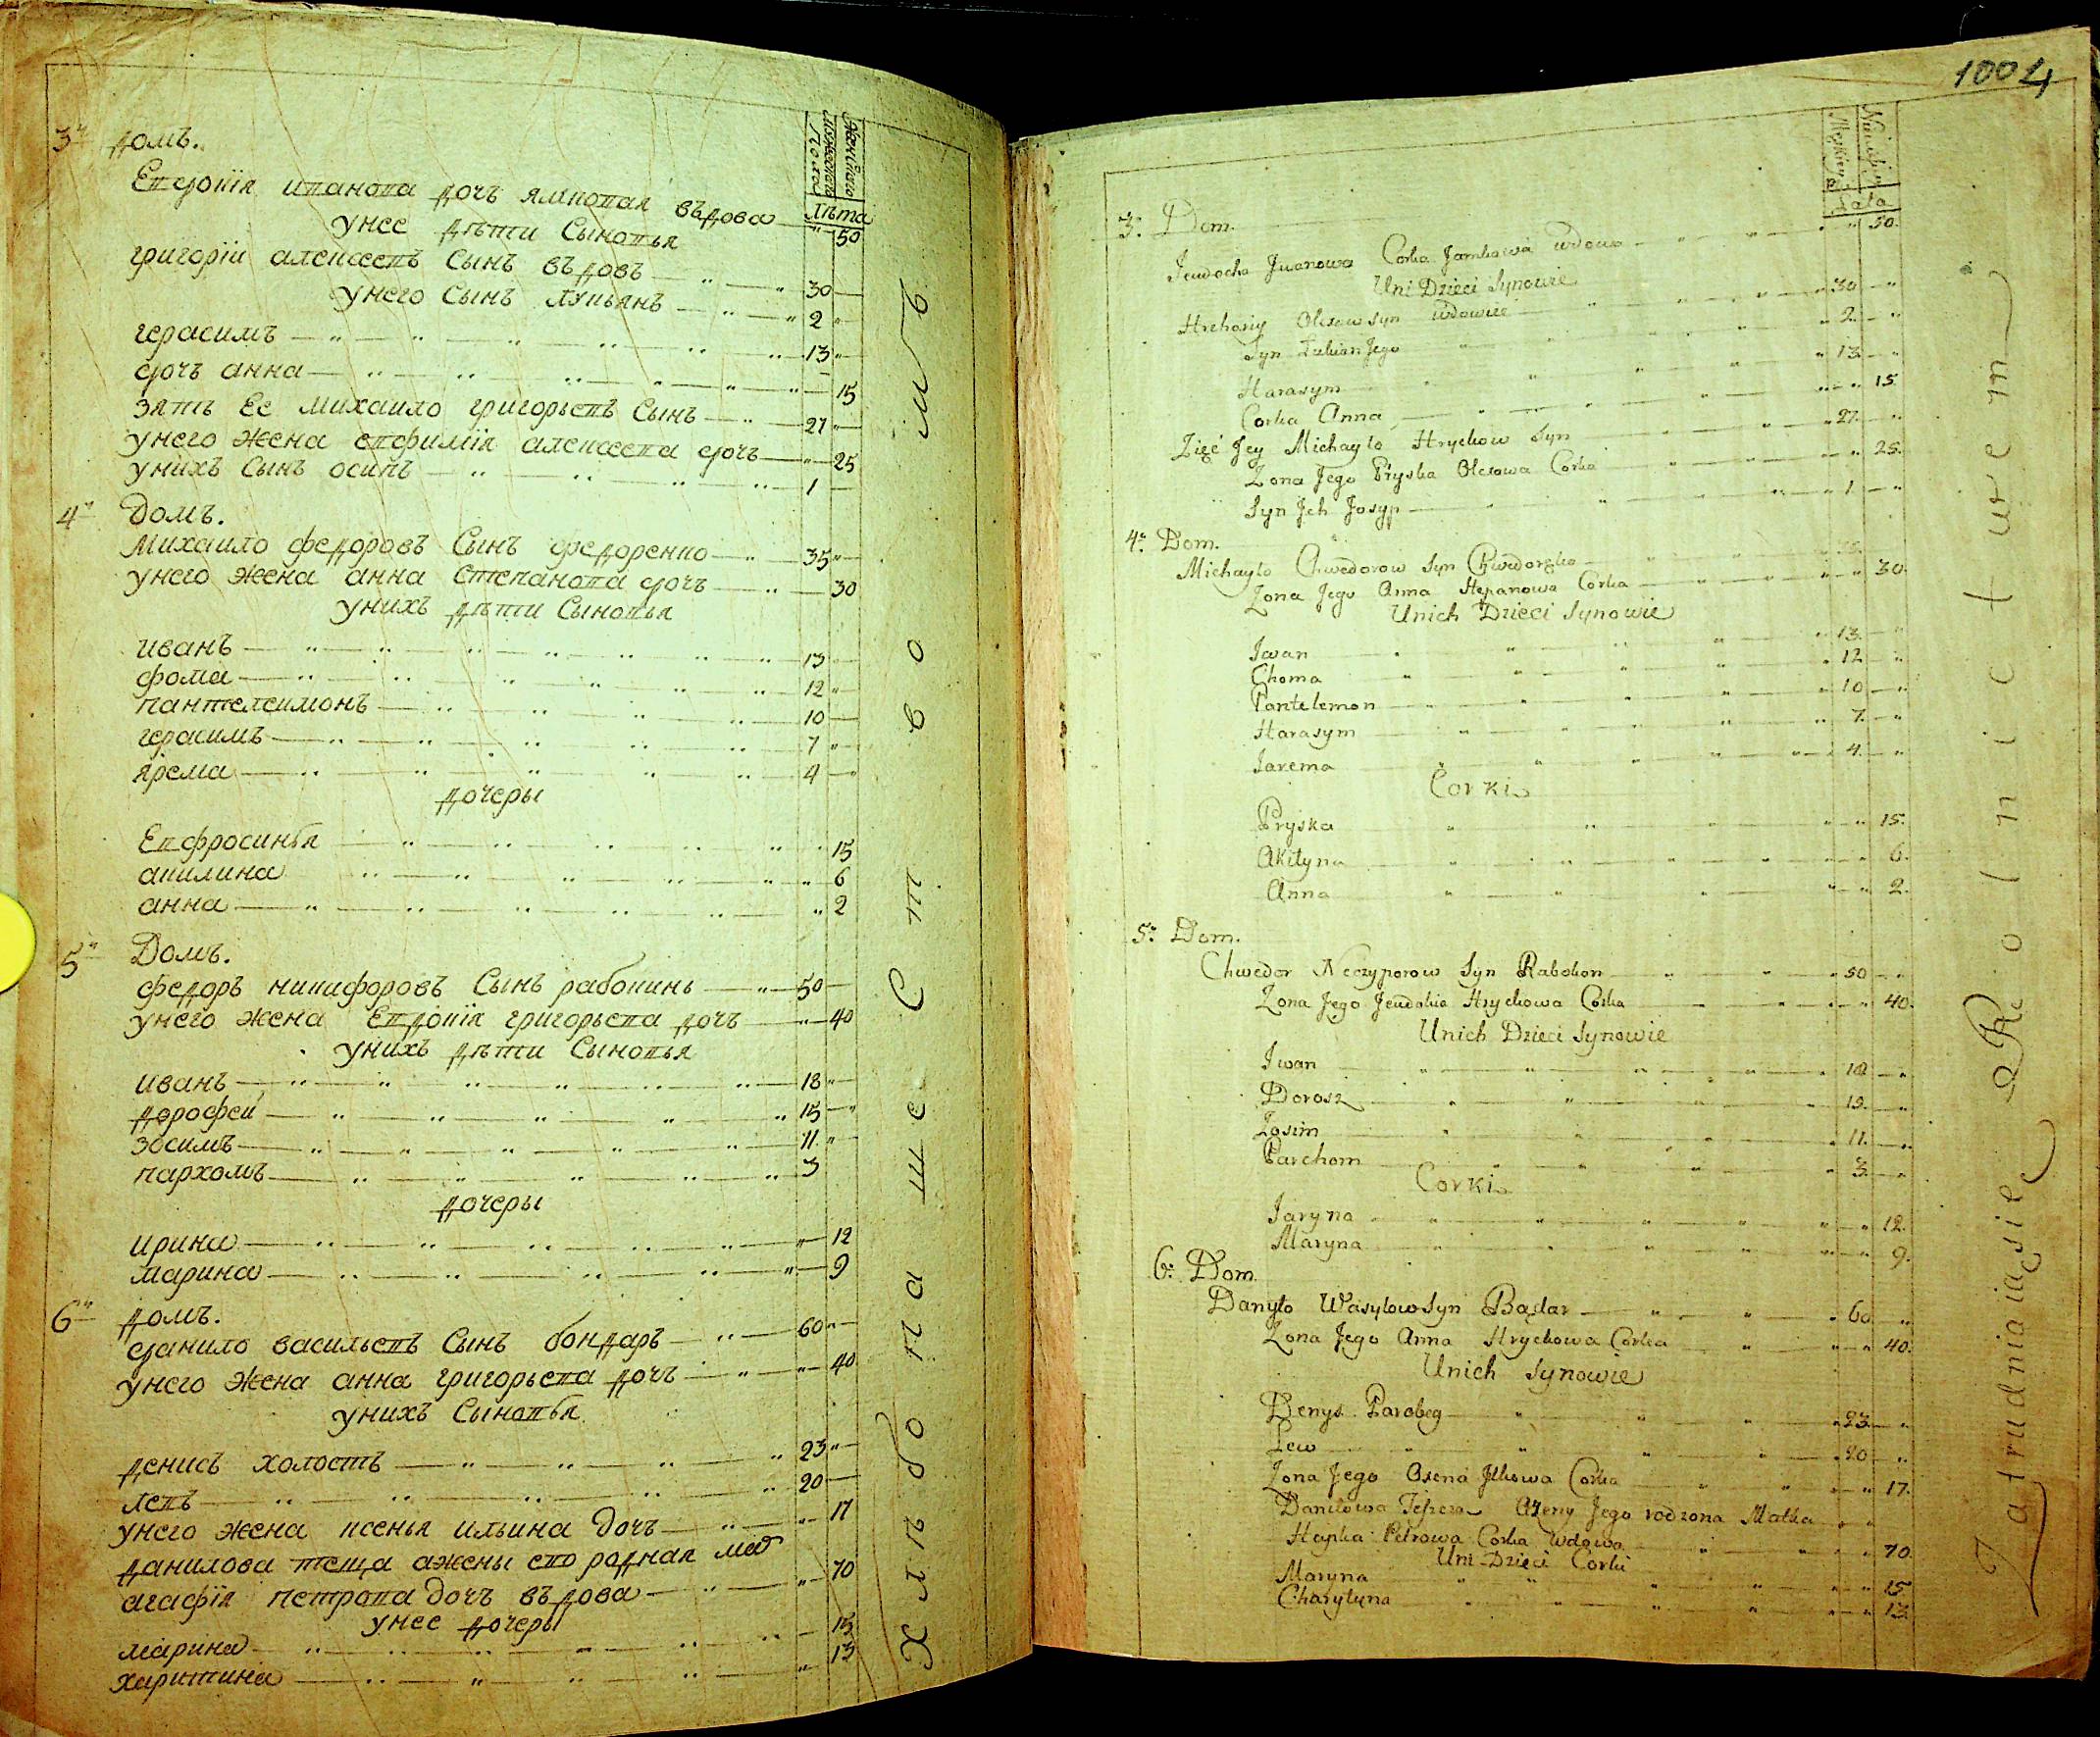 3. домъ.
Женского
Мужеского
Полоꙋ
Лѣта
Евдокiя иванова дочъ ямковая въдова 50
унее дѣти Сыновья
григорiи алексеевъ Сынъ въдовъ 30
унего Сынъ лукьянъ 2
герасимъ 13
дочъ анна 15
зять Ее михаило григорьевъ Сынъ 27
унего жена евфимiя алексеева дочъ 25
унихъ Сынъ осипъ 1
4. Домъ.
Михаило федоровъ Сынъ федоренко 35
унего жена анна степанова дочъ 30
унихъ дѣти Сыновья
иванъ 13
фома 12
пантелеимонъ 10
герасимъ 7
ярема 4
дочеры
Евфросинья 15
акилина 6
анна 2
5. Домъ.
федоръ никифоровъ Сынъ рабокинь 50
унего жена Евдокiя григорьева дочъ 40
унихъ дѣти Сыновья
иванъ 18
дорофеи 15
зосимъ 11
пархомъ 3
дочеры
ирина 12
марина 9
6. домъ.
данило васильевъ Сынъ бондаръ 60
унего жена анна григорьева дочъ 40
унихъ Сыновья
денисъ холостъ 23
левъ 20
унего жена ксенья ильина дочъ 17
данилова теща ажены его родная мат
агафiя петрова дочъ въдова 70
унее дочеры
марина 15
харитина 13
хлѣбопашеством
1004
Męzkiey P
Niewiesk
Lata
3. Dom.
Jewdocha Jwanowa Corka Jamkowa wdowa 50.
Uni Dzieci Synowie
Hrehoriy Olexow Syn wdowiec 30
Syn Łukian Jego 2.
Harasym 13.
Corka Anna 15
Zięć Jey Michayło Hryckow Syn 27.
Zona Jego Pryska Olexowa Corka 25.
Syn Jch Josyp 1.
4. Dom.
Michayło Chwedorow Syn Chwedorenko 35.
Zona Jego Anna Stepanowa Corka 30.
Unich Dzieci Synowie
Jwan 13.
Choma 12
Pantelemon 10
Harasym 7.
Jarema 4.
Corki
Pryska 15.
Akilyna 6.
Anna 2.
5. Dom.
Chwedor Neczyporow Syn Rabokon 50
Zona Jego Jewdokia Hryckowa Corka 40.
Unich Dzieci Synowie
Jwan 18
Dorosz 15.
Zosim 11.
Parchom 3.
Corki
Jaryna 12.
Maryna 9.
6. Dom.
Danyło Wasylow Syn Bądar 60
Zona Jego Anna Hryckowa Corka 40.
Unich Synowie
Denys Parobeg 23
Lew 20
Zona Jego Oxena Jlkowa Corka 17.
Daniłowa Teszcza Ażeny Jego rodzona Matka
Hapka Petrowa Corka Wdowa 70.
Uni Dzieci Corki
Maryna 15
Charytyna 13
Zatrudniaią się Rolnictwem